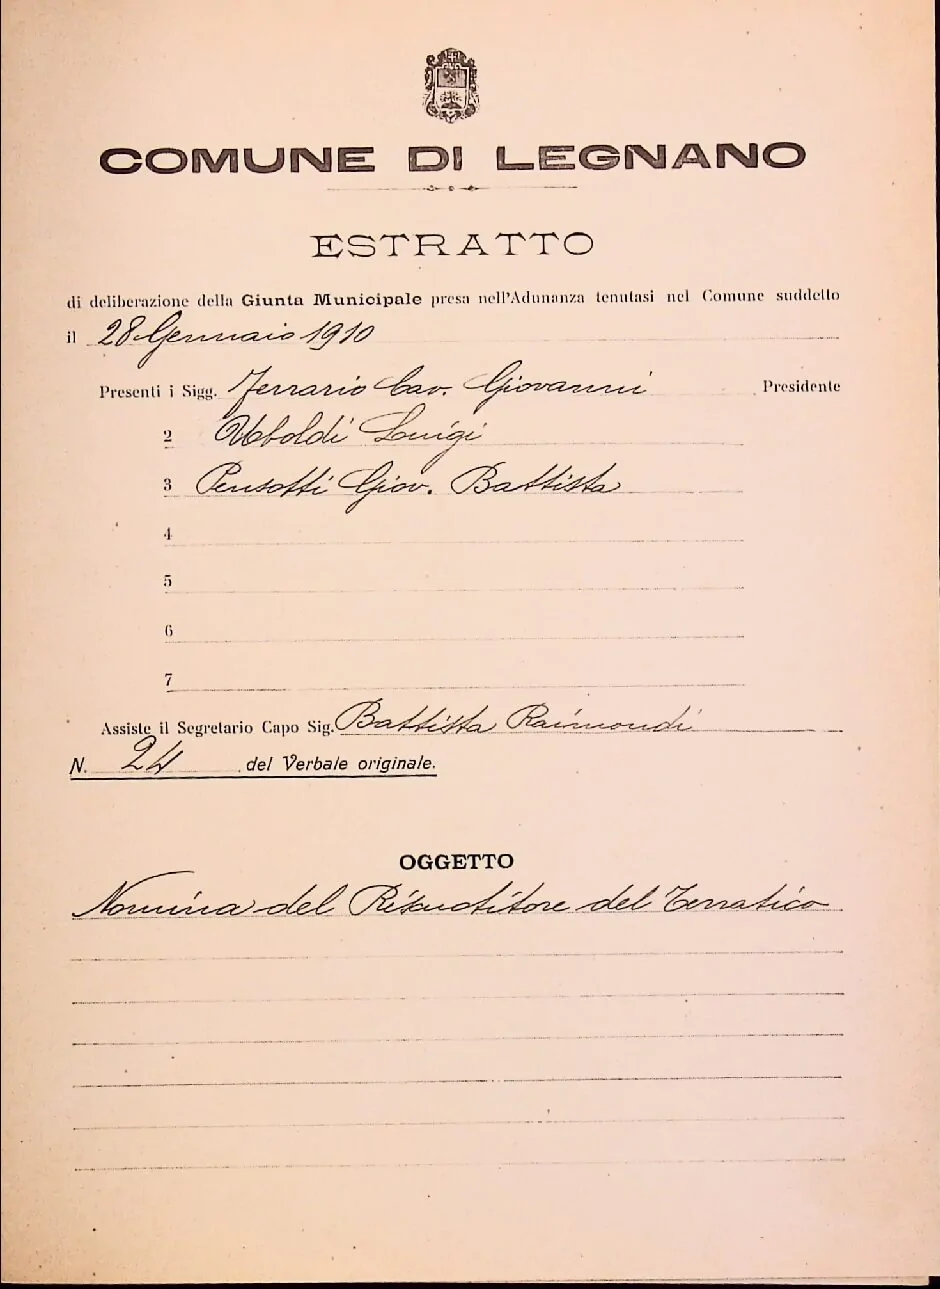 COMUNE DI LEGNANO
ESTRATTO
di deliberazione della Giunta Municipale presa nell'Adunanza tenutasi nel Comune suddetto
il 28 Gennaio 1910
Presenti i Sigg. Ferrario Cav. Giovanni Presidente
2 Uboldi Luigi
3 Pensotti Giov. Battista
4
5
6
7
Assiste il Segretario Capo Sig. Battista Raimondi
N. 24 del Verbale originale.
OGGETTO
Nomina del Riscuotitore del Terratico